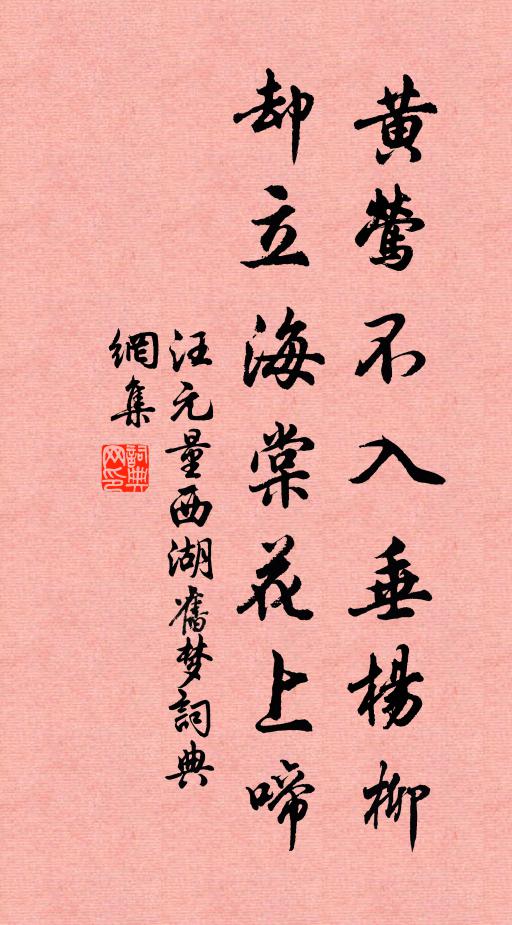 黄莺不入垂杨柳
却立海棠花上啼
汪元量西湖舊梦詞典
網集
詞典
网印